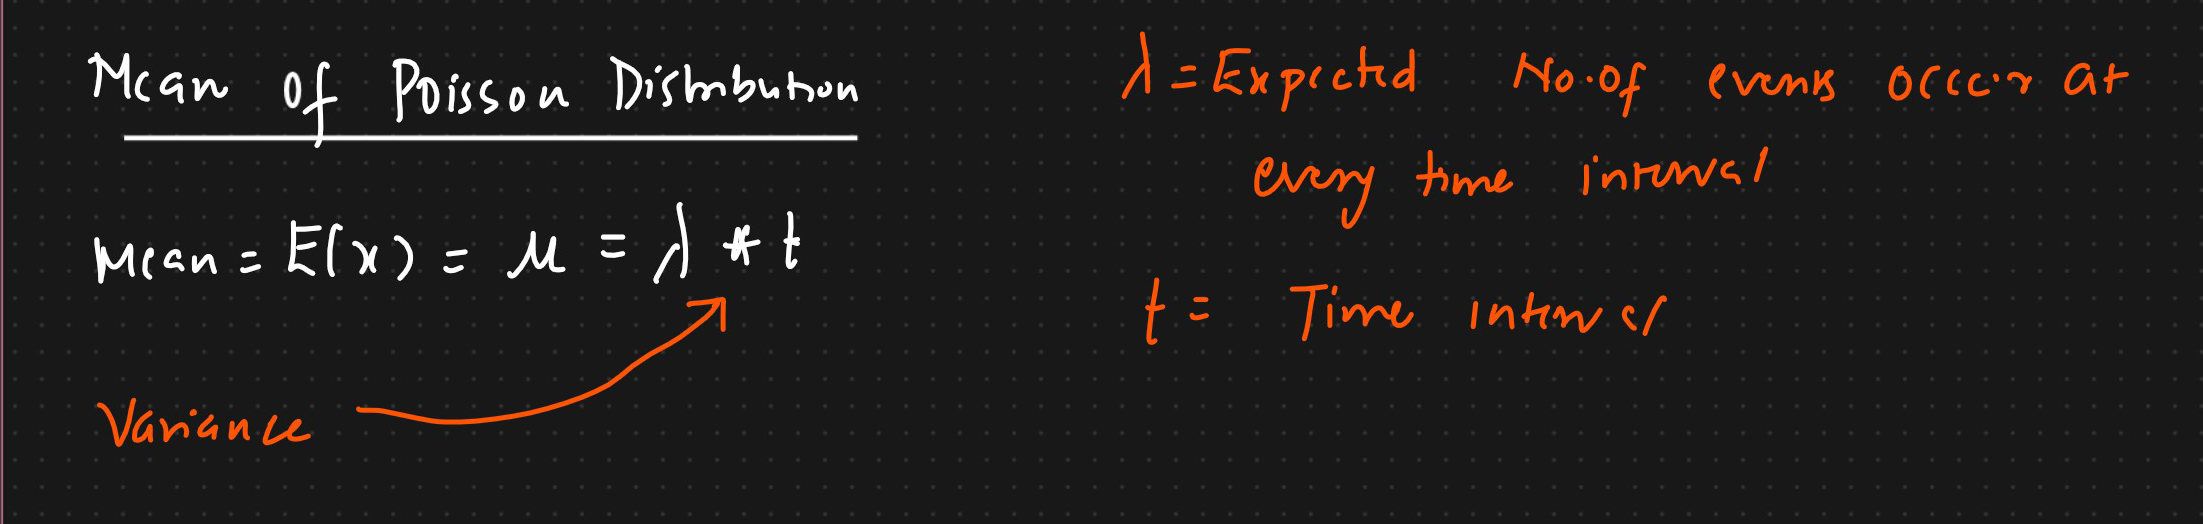 Mean of Poisson Distribution
Mean = E(x) = μ = λ * t
Variance
λ = Expected No. of events occur at
every time interval
t = Time interval